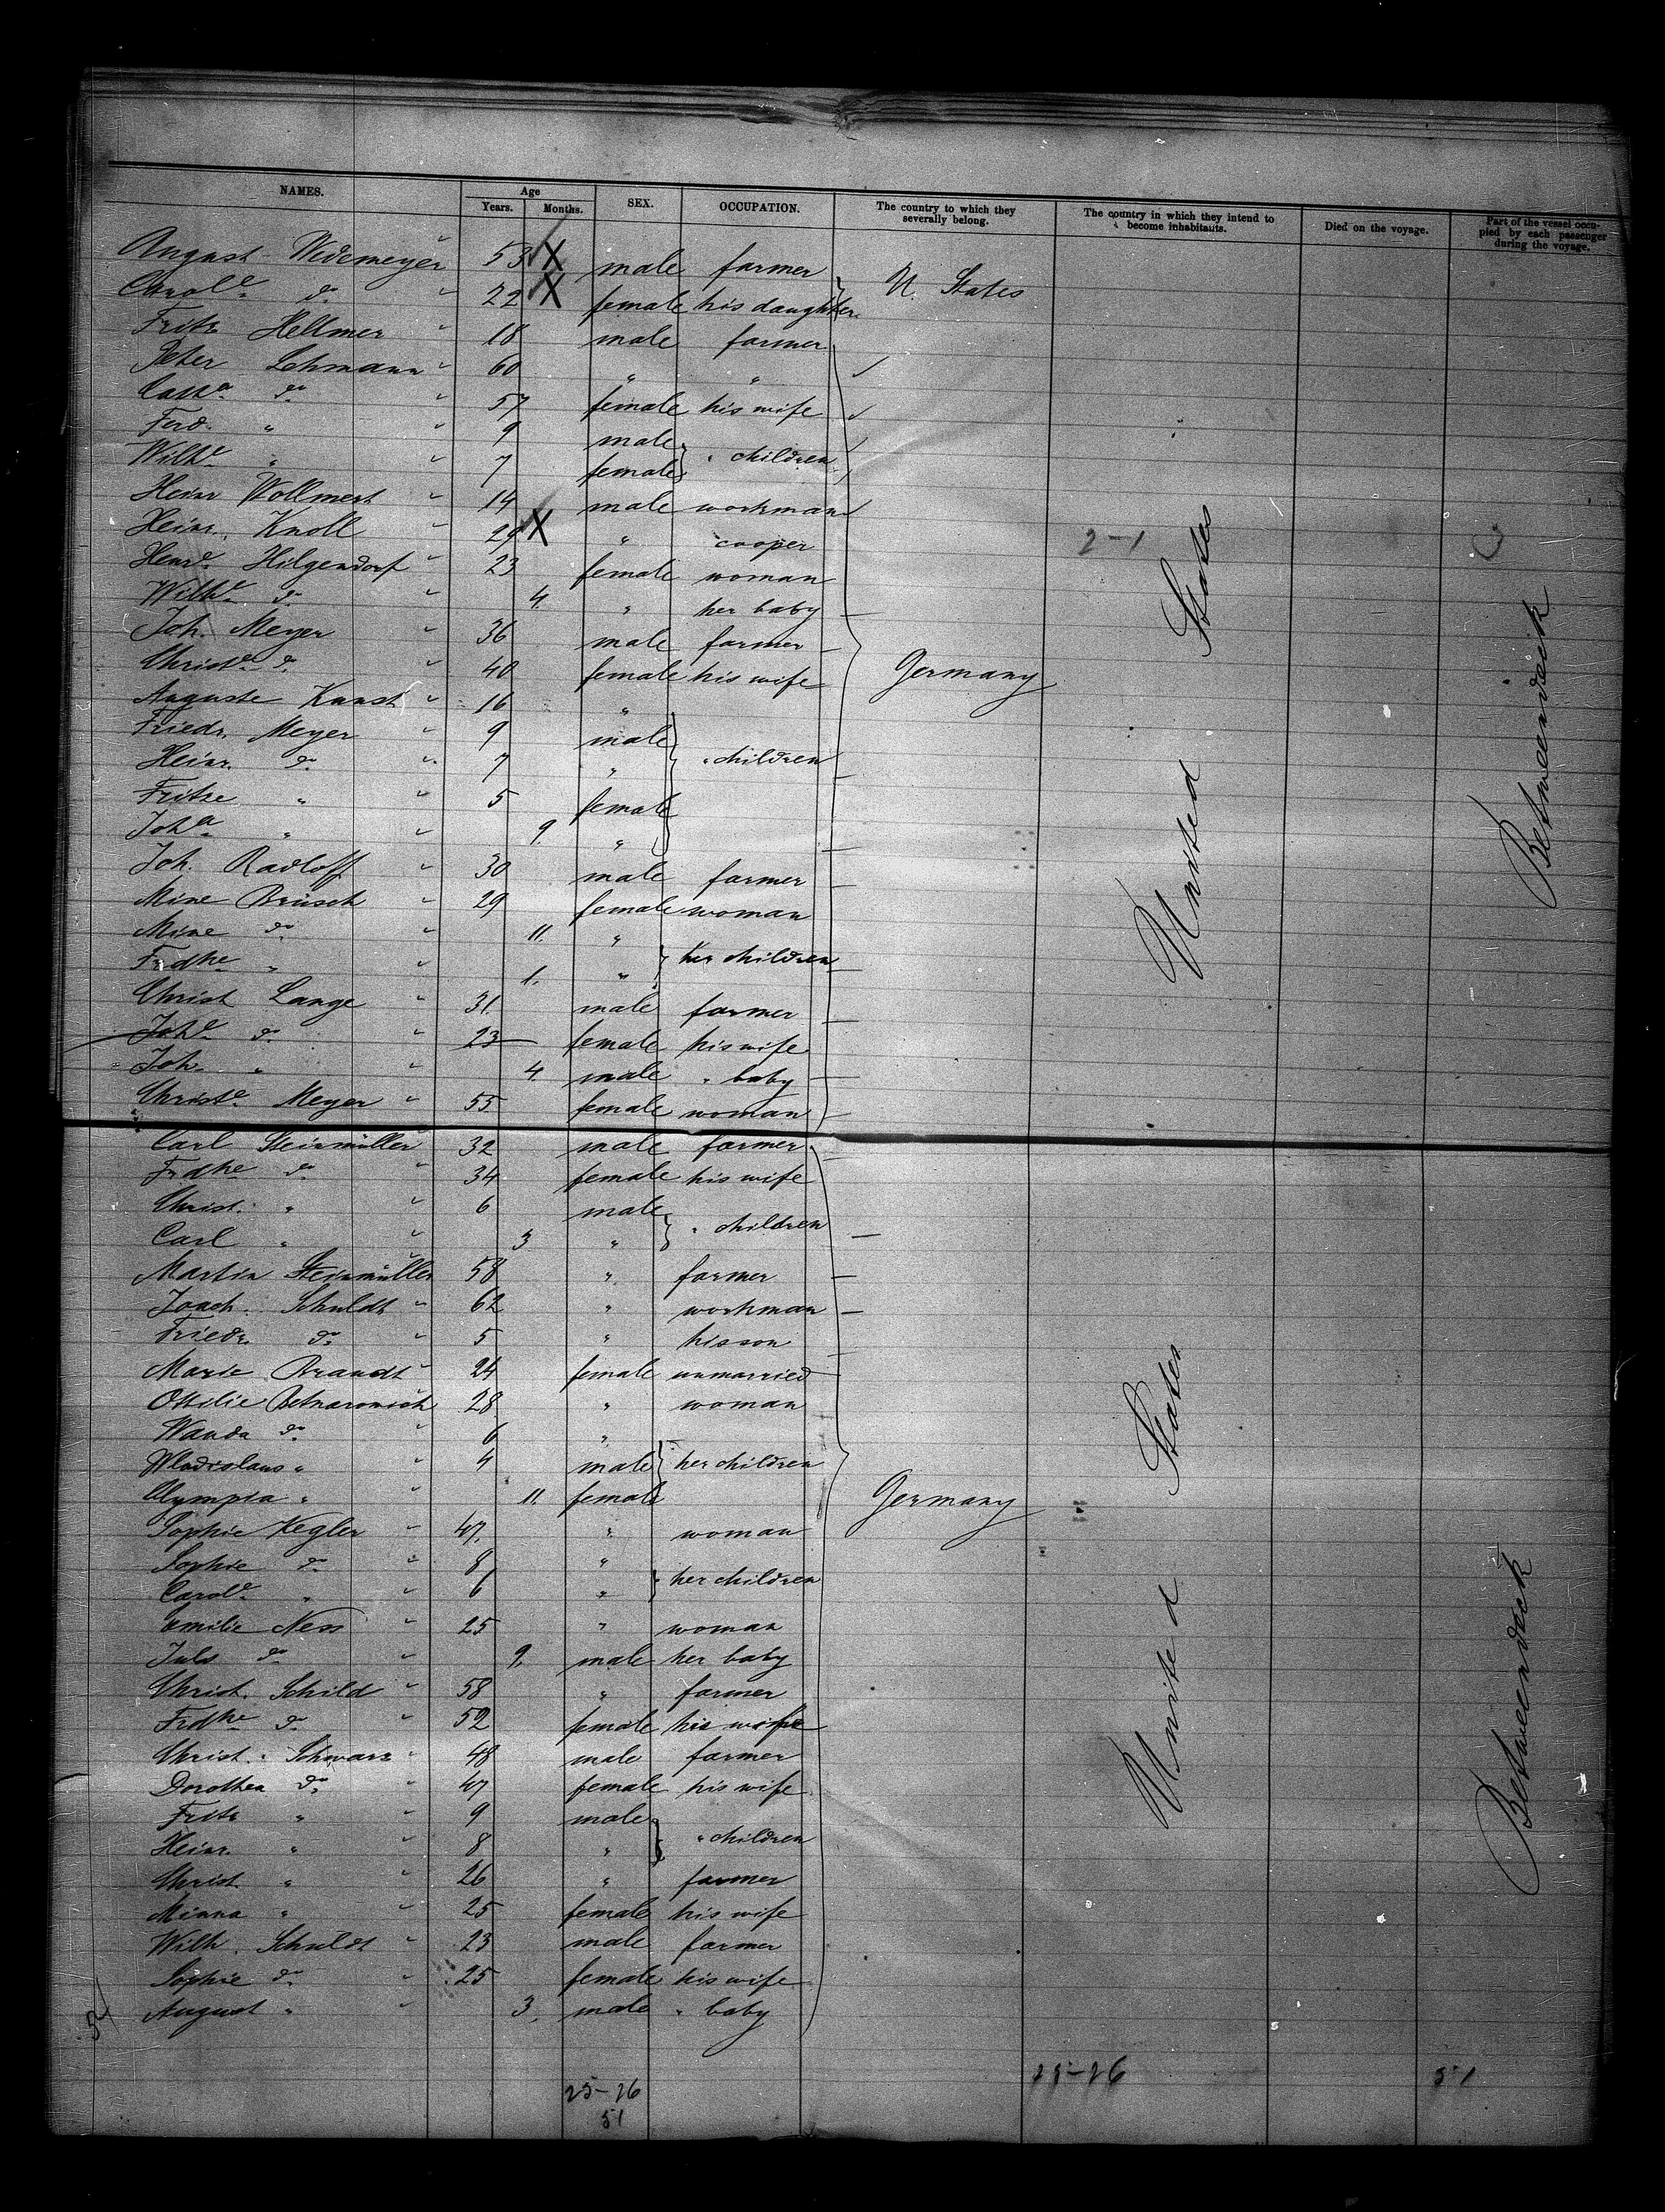 NAMES. Age Years. Months. SEX. OCCUPATION. The country to which they severally belong. The country in which they intend to become inhabitants. Died on the voyage. Part of the vessel occupied by each passenger during the voyage.
August Wedemeyer 53 X male farmer
Carole do 22 X female his daughter U. States
Fritz Hellmer 18 male farmer
Peter Lehmann 60 " "
Cathe do 57 female his wife
Ferd. " 9 male
Wilhe " 7 female " children
Heinr Wollmert 14 male workman
Heinr. Knoll 29 X " cooper
Henre Hilgendorf 23 female woman
Wilhe do 4. " her baby
Joh. Meyer 36 male farmer
Christe do 40 female his wife Germany
Auguste Kunst 16 "
Friedr. Meyer 9 male
Heinr. do 7 " " children
Fritze " 5 female
Joha " 9. "
Joh. Radloff 30 male farmer
Mine Brüsch 29 female woman
Mine do 11. "
Frdke " 1. " her children
Christ Lange 31. male farmer
Johe do 23 female his wife
Joh. " 4. male " baby
Christe Meyer 55 female woman
United States
Betweendeck
2-1
Carl Steinmüller 32 male farmer
Frdke do 34 female his wife
Christ. " 6 male
Carl " 3 " " children
Martin Steinmüller 58 " farmer
Joach. Schuldt 62 " workman
Friedr. do 5 " his son
Marie Brandt 24 female unmarried
Ottilie 28 " woman
Wanda do 6 "
Wladislaus " 4 male her children
Olympia " 11. female Germany
Sophie Kegler 47. " woman
Sophie do 8 "
Carole " 6 " her children
Emilie Ness 25 " woman
Juls do 9. male her baby
Christ. Schild 58 " farmer
Frdke do 52 female his wife
Christ. Schwarz 48 male farmer
Dorothea do 47 female his wife
Fritz " 9 male
Heinr. " 8 " " children
Christ. " 26 " farmer
Minna " 25 female his wife
Wilh. Schuldt 23 male farmer
Sophie do 25 female his wife
August " 3. male " baby
United States
Betweendeck
25-26 25-26 51
51